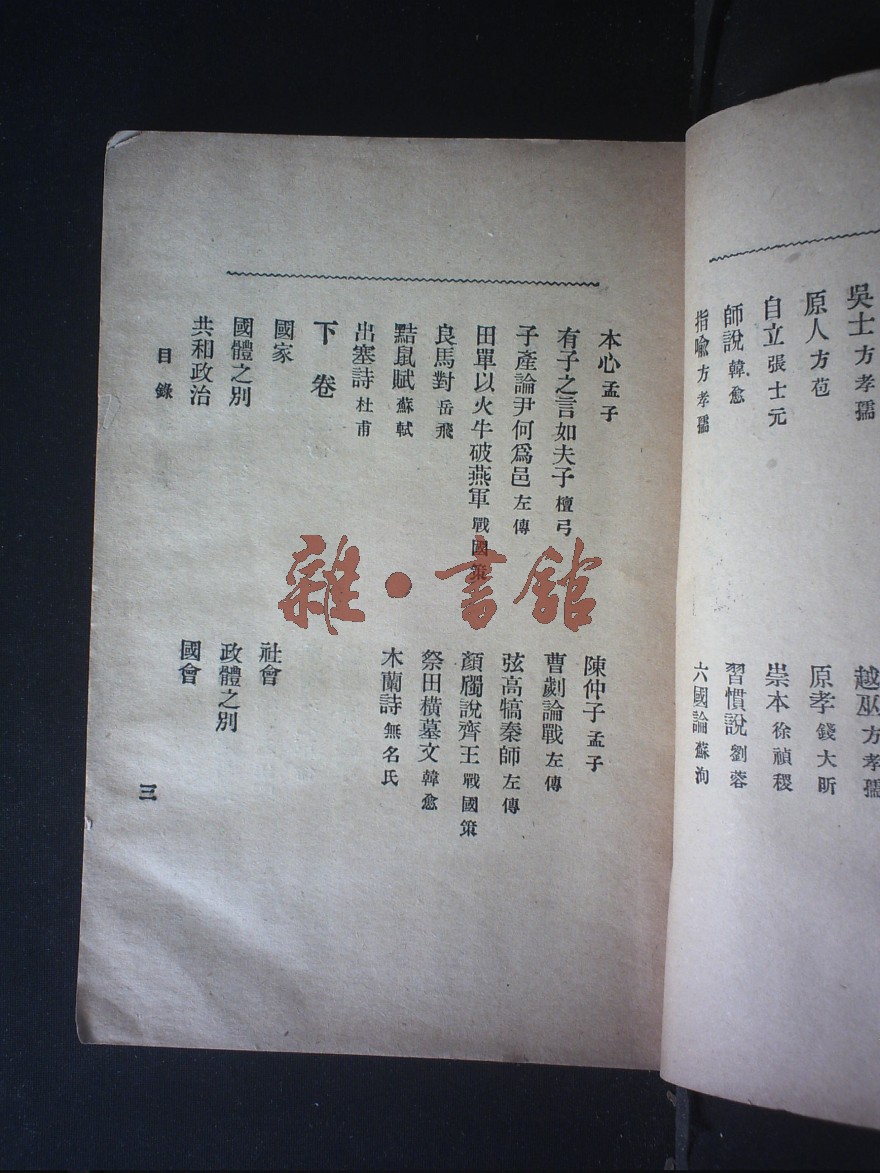 吳士 方孝孺
越巫 方孝孺
原人 方苞
原孝 錢大昕
自立 張士元
崇本 徐禎稷
師說 韓愈
習慣說 劉蓉
指喻 方孝孺
六國論 蘇洵
本心 孟子
陳仲子 孟子
有子之言如夫子 檀弓
曹劌論戰 左傳
子產論尹何爲邑 左傳
弦高犒秦師 左傳
田單以火牛破燕軍 戰國策
顏斶說齊王 戰國策
良馬對 岳飛
祭田橫墓文 韓愈
黠鼠賦 蘇軾
木蘭詩 無名氏
出塞詩 杜甫
下卷
國家
社會
國體之別
政體之別
共和政治
國會
目錄
三
雜·書館